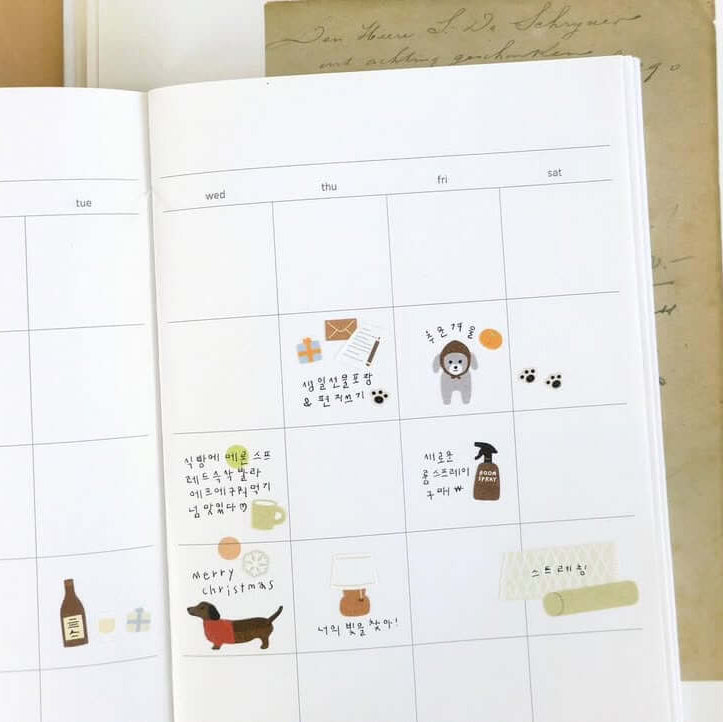 Den Heere S. De Schryver
met achting geschonken
tue
wed
thu
fri
sat
생일선물포장
& 편지쓰기
추운겨울
식빵에 메론 스프
레드 슥삭 발라
에프에 구워먹기
넘 맛있다
새로운
룸스프레이
구매 ₩
ROOM
SPRAY
merry
christmas
너의 빛을 찾아!
스트레칭